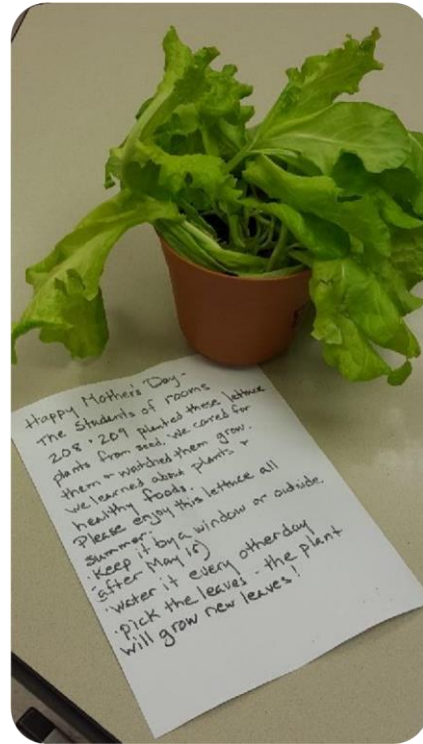 Happy Mother's Day -
The Students of rooms
208 + 209 planted these lettuce
plants from seed. We cared for
them + watched them grow.
We learned about plants +
healthy foods.
Please enjoy this lettuce all
summer.
· Keep it by a window or outside
(after May 15)
· water it every other day
· pick the leaves - the plant
will grow new leaves!